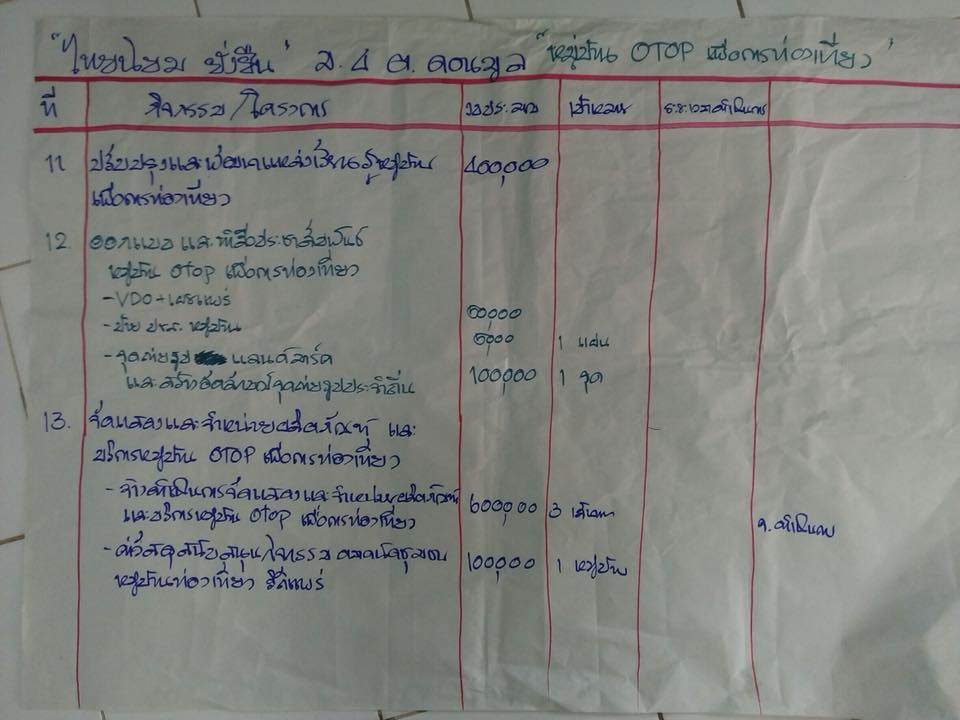 "ไทยนิยม ยั่งยืน" ม. 4 ต. ดอนมูล "หมู่บ้าน OTOP เพื่อการท่องเที่ยว"
ที่ กิจกรรม/โครงการ งบประมาณ เป้าหมาย ระยะเวลาดำเนินการ
11 ปรับปรุงและพัฒนาแหล่งเรียนรู้หมู่บ้าน 400,000
เพื่อการท่องเที่ยว
12. ออกแบบ และ ประชาสัมพันธ์
หมู่บ้าน OTOP เพื่อการท่องเที่ยว
- VDO + เผยแพร่ 50,000
- ป้าย ปชส. หมู่บ้าน 1 แผ่น
- จุดถ่ายรูป แลนด์มาร์ค 100,000 1 จุด
และสร้างอัตลักษณ์จุดถ่ายรูปประจำถิ่น
13. จัดแสดงและจำหน่ายผลิตภัณฑ์ และ
บริการหมู่บ้าน OTOP เพื่อการท่องเที่ยว
- จ้างดำเนินการจัดแสดงและจำหน่ายผลิตภัณฑ์ 600,000 3
และบริการหมู่บ้าน OTOP เพื่อการท่องเที่ยว
จ. ดำเนินการ
- ค่าวัสดุสนับสนุนกิจกรรม ตลาดนัดชุมชน 100,000 1 หมู่บ้าน
หมู่บ้านท่องเที่ยว วิถีแพร่